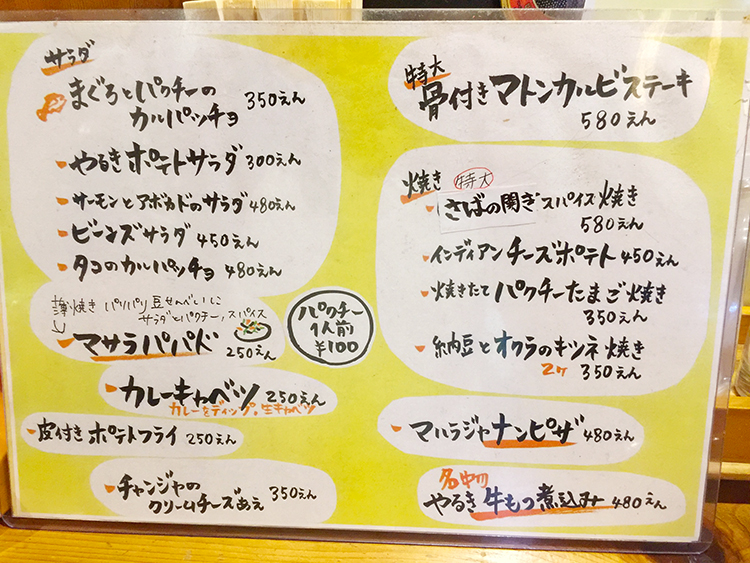 サラダ
まぐろとパクチーの
カルパッチョ 350えん
やるきポテトサラダ 300えん
サーモンとアボカドのサラダ 480えん
ビーンズサラダ 450えん
タコのカルパッチョ 480えん
焼き パリパリ豆せんべいに
サラダとパクチー,スパイス
マサラパパド 250えん
パクチー
1人前
¥100
カレーキャベツ 250えん
カレーをディップ。生キャベツ
皮付きポテトフライ 250えん
チャンジャの
クリームチーズあえ 350えん
特大
骨付きマトンカルビステーキ
580えん
焼き 特大
さばの開きスパイス焼き
580えん
インディアンチーズポテト 450えん
焼きたてパクチーたまご焼き
350えん
納豆とオクラのキツネ焼き
2ケ 350えん
マハラジャナンピザ 480えん
名物
やるき牛もつ煮込み 480えん